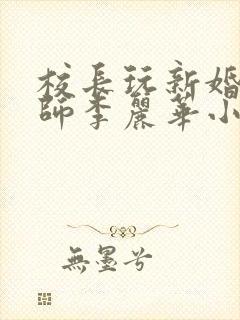 校長玩新婚
師李麗華小
無墨兮